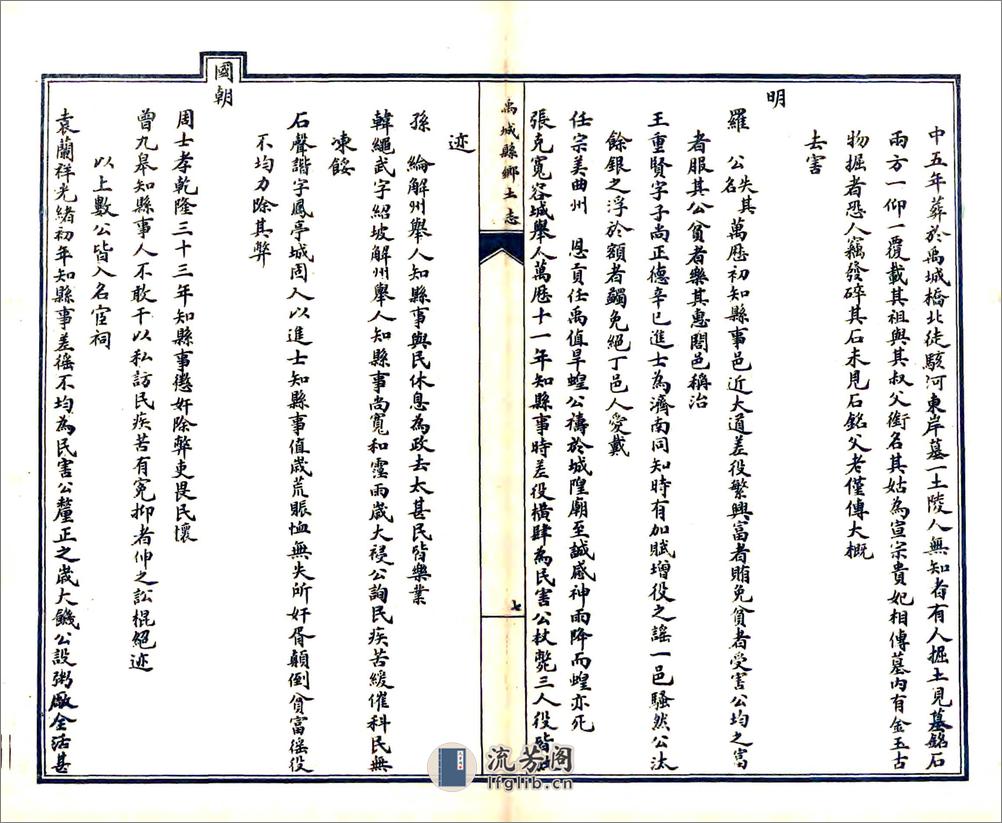 中五年葬於禹城橋北徒駭河東岸墓一土陵人無知者有人掘土見墓銘石
兩方一仰一覆載其祖與其叔父銜名其姑為宣宗貴妃相傳墓內有金玉古
物掘者恐人竊發碎其石未見石銘父老僅傳大概
去害
明
羅公失其名萬歷初知縣事邑近大道差役繁興富者賄免貧者受害公均之富
者服其公貧者樂其惠闔邑稱治
王重賢字子尚正德辛巳進士為濟南同知時有加賦增役之謠一邑騷然公汰
餘銀之浮於額者蠲免絕丁邑人愛戴
任宗美曲州恩貢任禹值旱蝗公禱於城隍廟至誠感神雨降而蝗亦死
張克寬容城舉人萬歷十一年知縣事時差役橫肆為民害公杖斃三人役皆
禹城縣鄉土志
七
迹
孫綸解州舉人知縣事與民休息為政去太甚民皆樂業
韓繩武字紹坡解州舉人知縣事尚寬和霪雨歲大祲公詢民疾苦緩催科民無
凍餒
石聲諧字鳳亭城固人以進士知縣事值歲荒賑恤無失所奸胥顛倒貧富徭役
不均力除其弊
國朝
周士孝乾隆三十三年知縣事懲奸除弊吏畏民懷
曾九皋知縣事人不敢干以私訪民疾苦有冤抑者伸之訟棍絕迹
以上數公皆入名宦祠
袁蘭祥光緒初年知縣事差徭不均為民害公釐正之歲大饑公設粥廠全活甚
流芳阁
lfglib.cn